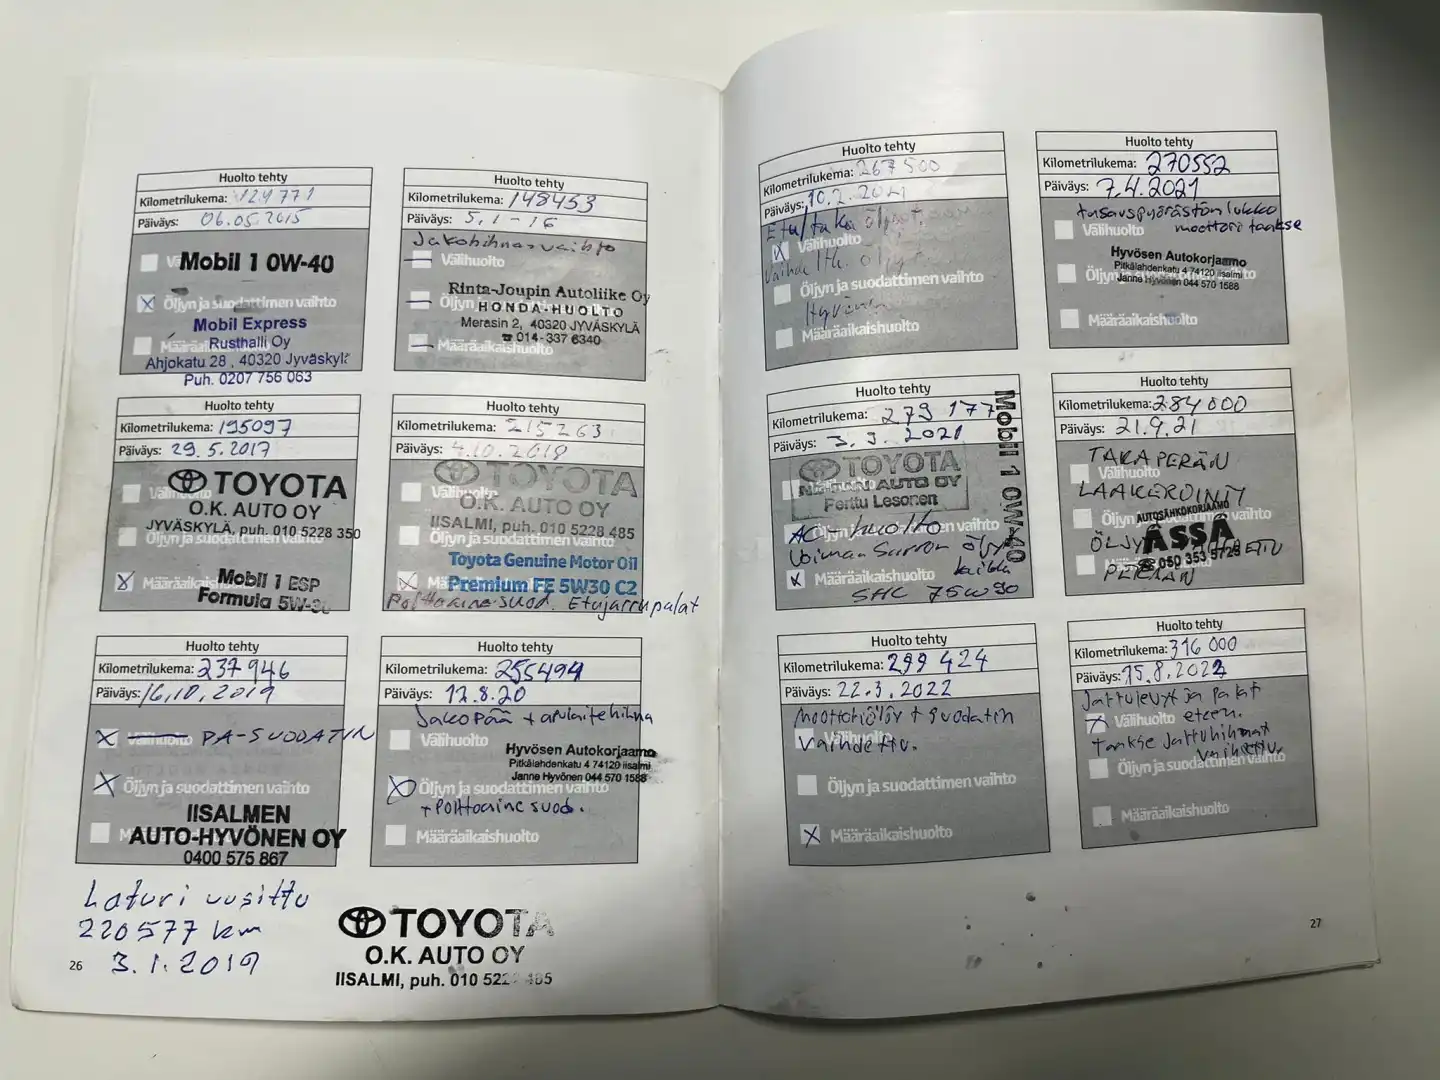 Huolto tehty
Kilometrilukema: 124771
Päiväys: 06.05.2015
Mobil 1 0W-40
Öljyn ja suodattimen vaihto
Mobil Express
Rusthalli Oy
Ahjokatu 28, 40320 Jyväskylä
Puh. 0207 756 063
Huolto tehty
Kilometrilukema: 148453
Päiväys: 5.1-16
Jakohihnanvaihto
Välihuolto
Rinta-Joupin Autoliike Oy
HONDA-HUOLTO
Merasin 2, 40320 JYVÄSKYLÄ
☎ 014-337 6340
Määräaikaishuolto
Huolto tehty
Kilometrilukema: 195097
Päiväys: 29.5.2017
TOYOTA
O.K. AUTO OY
JYVÄSKYLÄ, puh. 010 5228 350
Öljyn ja suodattimen vaihto
Määräaikaishuolto
Mobil 1 ESP
Formula 5W-30
Huolto tehty
Kilometrilukema: 215263
Päiväys: 4.10.2018
TOYOTA
Välihuolto
O.K. AUTO OY
IISALMI, puh. 010 5228 485
Öljyn ja suodattimen vaihto
Toyota Genuine Motor Oil
Premium FE 5W30 C2
Polttoainesuod. Etujarrupalat
Huolto tehty
Kilometrilukema: 237946
Päiväys: 16.10.2019
Välihuolto PA-SUODATIN
Öljyn ja suodattimen vaihto
IISALMEN
AUTO-HYVÖNEN OY
0400 575 867
Huolto tehty
Kilometrilukema: 255494
Päiväys: 12.8.20
Jakopää + apulaitehihna
Välihuolto
Hyvösen Autokorjaamo
Pitkälahdenkatu 4 74120 Iisalmi
Janne Hyvönen 044 570 1588
Öljyn ja suodattimen vaihto
+ polttoaine suod.
Määräaikaishuolto
Laturi uusittu
220577 km
3.1.2019
TOYOTA
O.K. AUTO OY
IISALMI, puh. 010 5228 485
26
Huolto tehty
Kilometrilukema: 267500
Päiväys: 10.2.2021
Etu/taka öljyt.
Välihuolto
Öljyn ja suodattimen vaihto
Määräaikaishuolto
Huolto tehty
Kilometrilukema: 270552
Päiväys: 7.4.2021
moottori taakse
Välihuolto
Hyvösen Autokorjaamo
Pitkälahdenkatu 4 74120 Iisalmi
Janne Hyvönen 044 570 1588
Määräaikaishuolto
Huolto tehty
Kilometrilukema: 279177
Päiväys: 3.3.2021
Mobil 1 0W-40
TOYOTA
AUTO OY
Perttu Lesonen
AC-huolto
Voiman Siirron öljy
kaikki
Määräaikaishuolto
SHC 75W90
Huolto tehty
Kilometrilukema: 284000
Päiväys: 21.9.21
TAKAPERÄN
Välihuolto
LAAKEROINTI
AUTOSÄHKÖKORJAAMO
ÄSSÄ
ÖLJY
☎ 050 353 5725
PERÄÄN
Huolto tehty
Kilometrilukema: 299 424
Päiväys: 22.3.2022
Moottoriöljy + suodatin
Välihuolto
vaihdettu.
Öljyn ja suodattimen vaihto
Määräaikaishuolto
Huolto tehty
Kilometrilukema: 316 000
Päiväys: 15.8.2022
Jarrulevyt ja palat
Välihuolto eteen.
Taakse Jarruhihnat
vaihdettu.
Öljyn ja suodattimen vaihto
Määräaikaishuolto
27